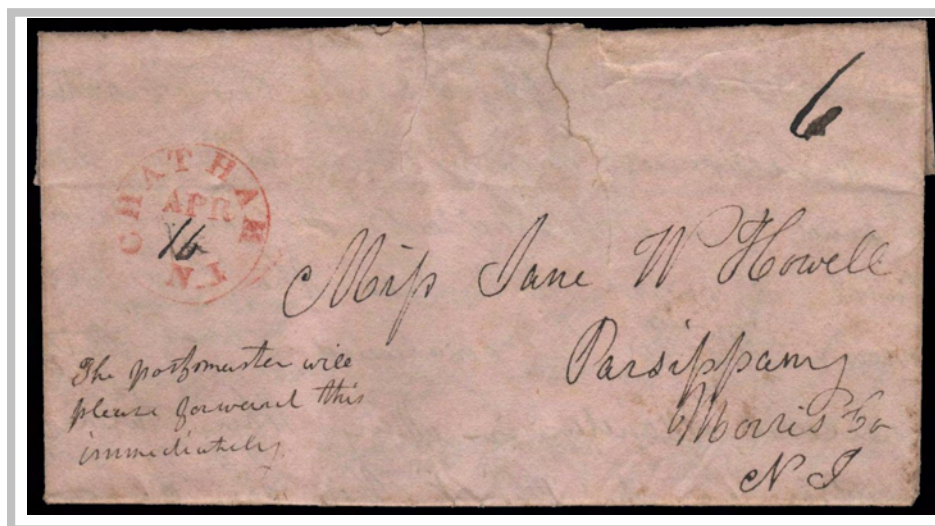 6
CHATHAM
APR
16
N.J
Miss Jane W Howell
Parsippany
Morris Co
N J
The postmaster will
please forward this
immediately